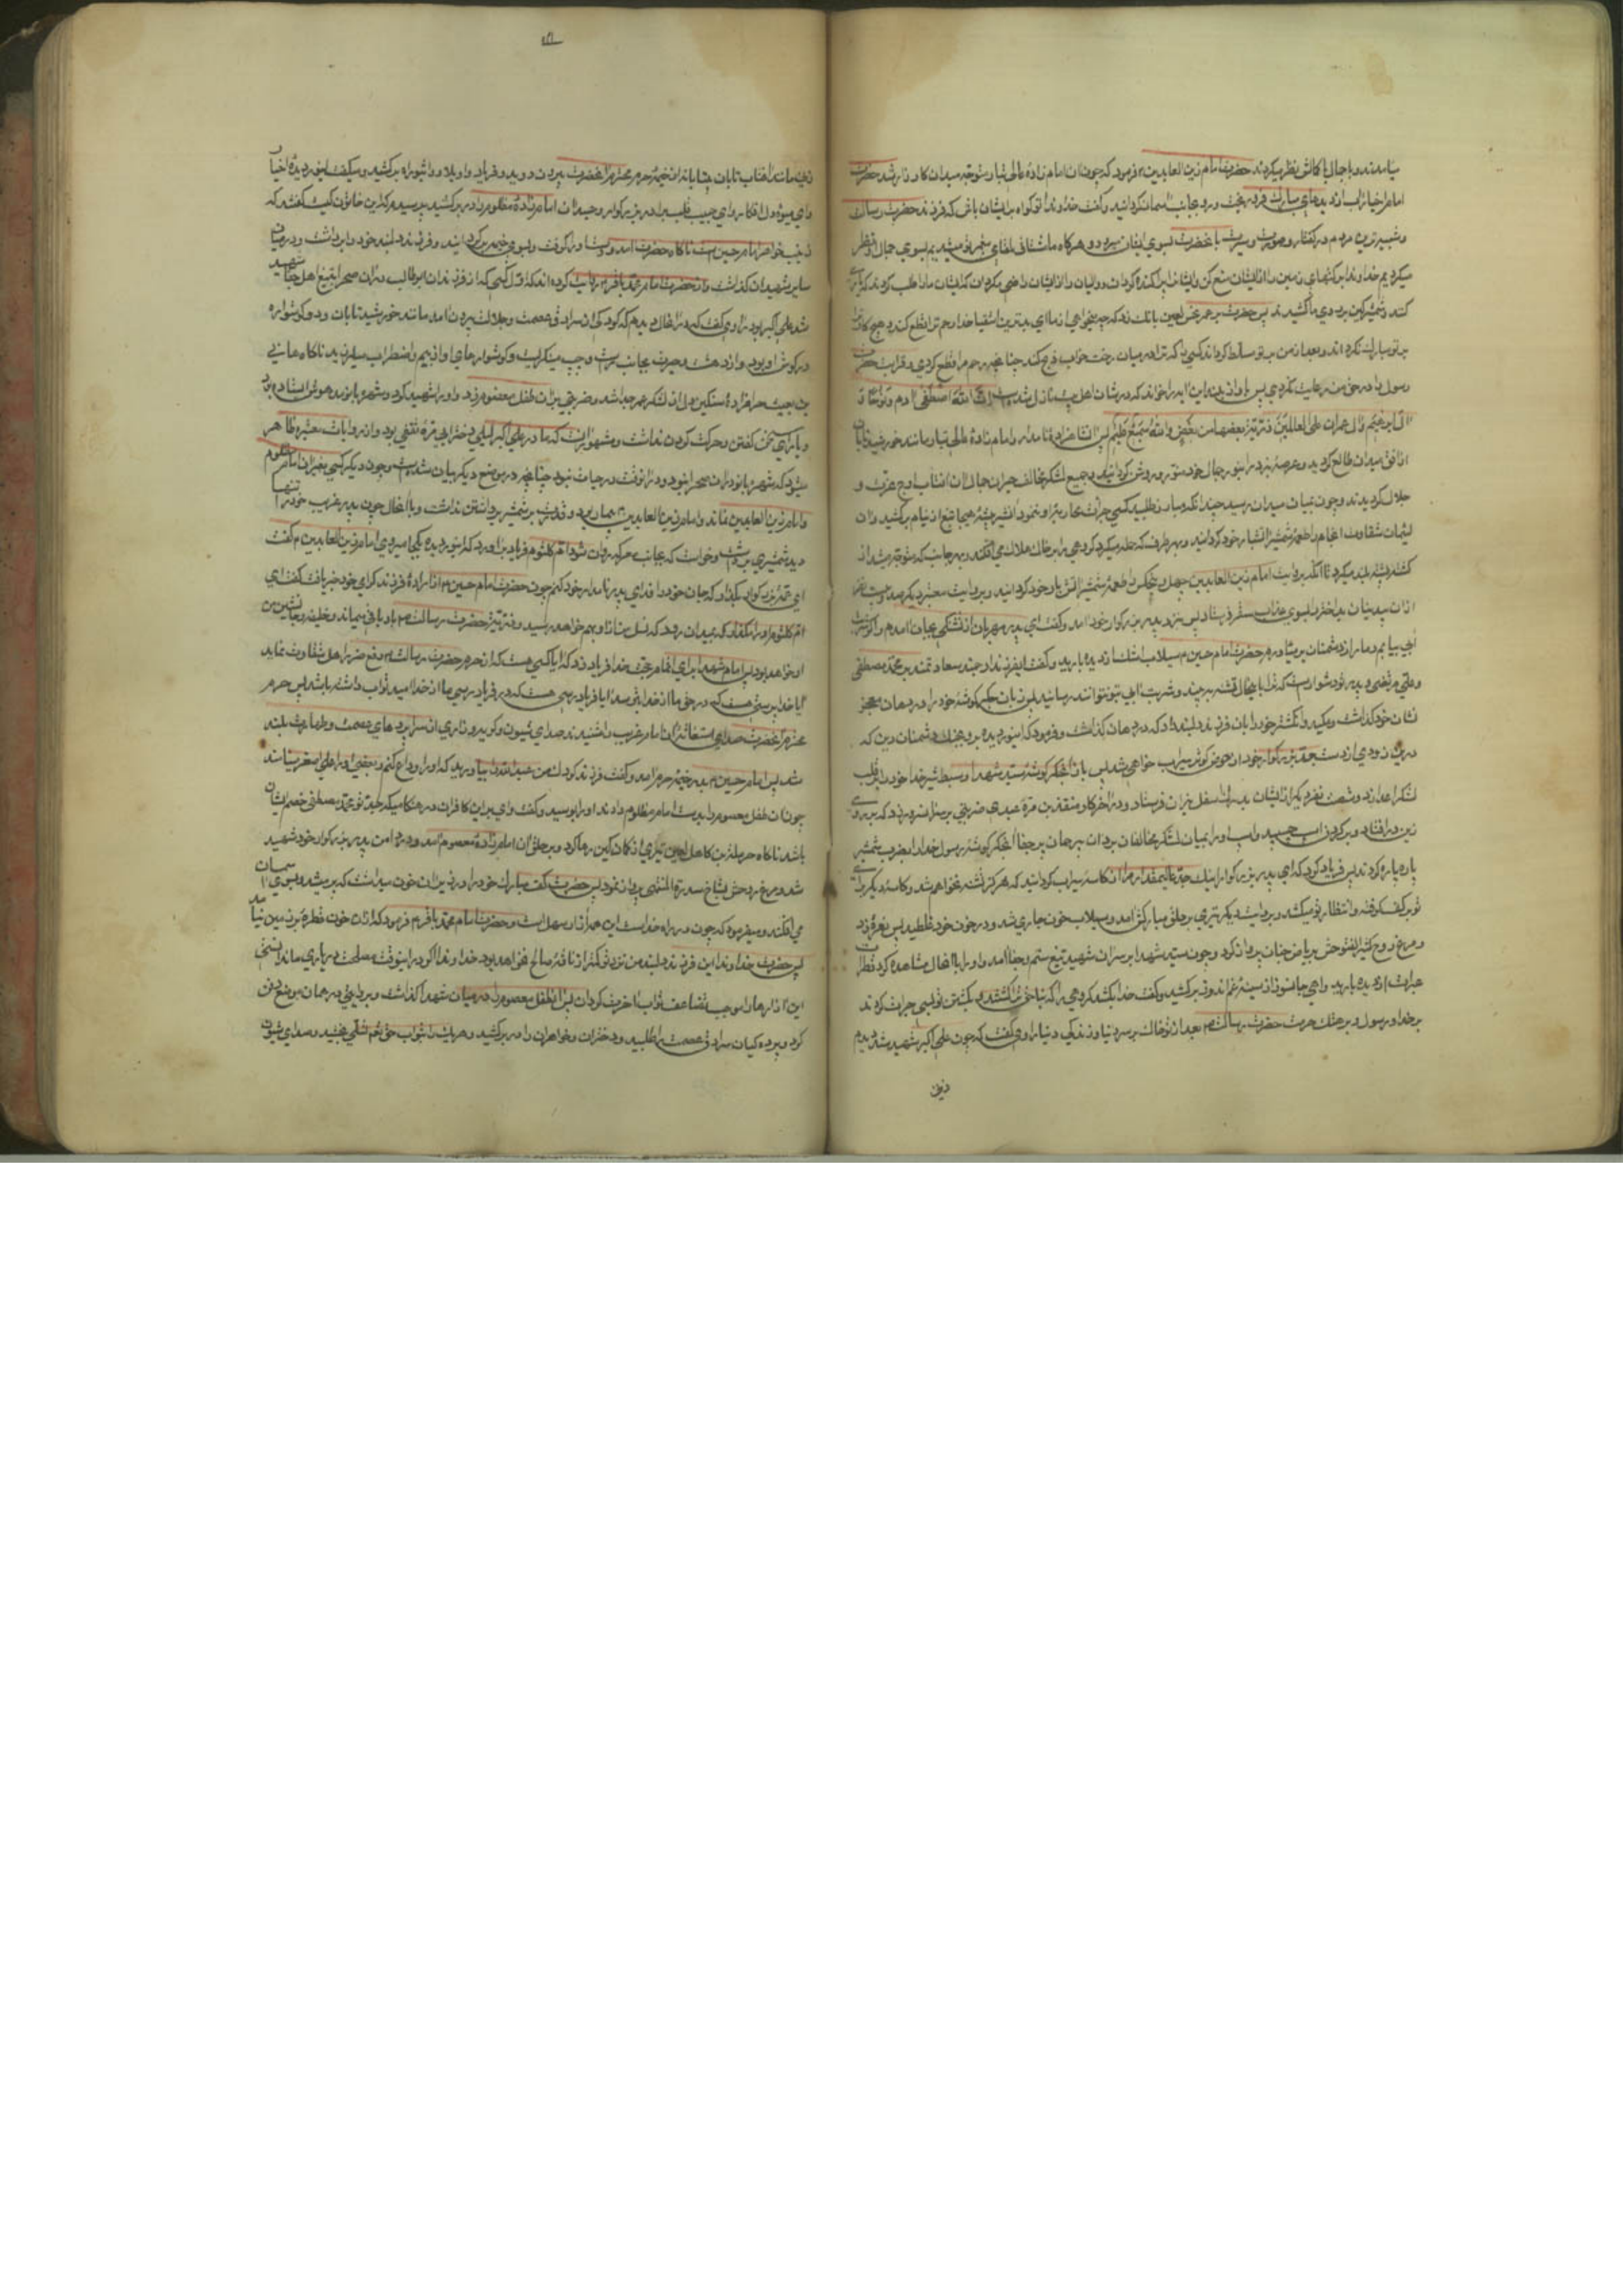 بیامدند و با جمال با کمالش نظر میکردند حضرت امام زین العابدین ع فرمود که چون ان امام زادهٔ عالی تبار متوجه میدان کارزار شد حضرت
امام اخیار اب از دیدهای مبارک فرو ریخت و رو بجانب اسمان کردانید و کفت خداوندا تو کواه بر ایشان باش که فرزند حضرت رسالت
و شبیه ترین مردم در کفتار و صورت و سیرت بانحضرت بسوی ایشان میرود و هرکاه ما مشتاق لقای پیغمبر تو میشدیم بسوی جمال او نظر
میکردیم خداوندا برکتهای زمین را از ایشان منع کن و ایشان را پراکنده کردان و والیان را از ایشان راضی مکردان که ایشان ما را طلب کردند که یاری
کنند و شمشیر کین بر روی ما کشیدند پس حضرت بر عمر نحس لعین بانک زد که چه میخواهی از ما ای بدترین اشقیا خدا رحم ترا قطع کند و هیچ کار ترا
بر تو مبارک نکرداند و بعد از من بر تو مسلط کرداند کسی را که ترا در میان رخت خواب ذبح کند چنانچه رحم مرا قطع کردی و قرابت حضرت
رسول را در حق من رعایت نکردی پس باواز بلند این ایه را خواند که در شان اهل بیت نازل شده است ان الله اصطفی ادم و نوحا و
ال ابرهیم و ال عمران علی العالمین ذریة بعضها من بعض والله سمیع علیم پس ان شاهزادهٔ نامدار و امام زادهٔ عالی تبار مانند خورشید تابان
از افق میدان طالع کردید و عرصهٔ نبرد را بنور جمال خود منور و روشن کردانید و جمیع لشکر مخالف حیران جمال ان افتاب اوج عزت و
جلال کردیدند و چون بمیان میدان رسید چندانکه مبارز طلبید کسی جرات محاربهٔ او ننمود ان شیر بیشهٔ هیجا تیغ از نیام برکشید و ان
لئیمان شقاوت انجام را طعمهٔ شمشیر اتشبار خود کردانید و بهر طرف که حمله میکرد کروهی را بر خاک هلاک می افکند و بهر جانب که متوجه میشد از
کشته پشته بلند میکرد تا انکه بروایت امام زین العابدین چهل و چهار کس را طعمهٔ شمشیر اتش بار خود کردانید و بروایت معتبر دیکر صد و بیست نفر
از ان بیدینان بداختر را بسوی عذاب سقر فرستاد پس نزد پدر بزرکوار خود امد و کفت ای پدر مهربان از تشنکی بجان امدم و اکر شربت
ابی بیابم دمار از دشمنان بر می اورم حضرت امام حسین ع سیلاب اشک از دیده بارید و کفت ای فرزند ارجمند سعادتمند بر محمد مصطفی
و علی مرتضی و پدر تو دشوار است که ترا باینحال تشنه بر بینند و شربت ابی بتو نتوانند رسانید پس زبان جکر کوشهٔ خود را در دهان معجز
نشان خود کذاشت و مکید و انکشتر خود را بان فرزند دلبند داد که در دهان کذاشت و فرمود که ای نور دیده برو بجنک دشمنان دین که
درین زودی از دست جد بزرکوار خود از حوض کوثر سیراب خواهی شد پس باز ان جکر کوشهٔ سید شهدا و سبط شیر خدا خود را بر قلب
لشکر اعدا زد و شصت نفر دیکر از ایشان بدرک اسفل نیران فرستاد و در اخر کار منقذ بن مرهٔ عبدی ضربتی بر سر انسرور زد که بر روی
زین در افتاد و بر کردن اسب چسپید و اسب او را بمیان لشکر مخالفان برد ان بیرحمان پر جفا ان جکر کوشهٔ رسول خدا را بضرب شمشیر
پاره پاره کردند پس فریاد کرد که ای پدر بزرکوار اینک جد عالیمقدار مرا از کاسهٔ سیراب کردانید که هرکز تشنه نخواهم شد و کاسهٔ دیکر برای
تو بر کف کرفته و انتظار تو میکشد و بروایت دیکر تیری بر حلق مبارکش امد و سیلاب خون جاری شد و در خون خود غلطید پس نعرهٔ زد
و مرغ روح کثیر الفتوحش بریاض جنان پرواز کرد و چون سید شهدا بر سر ان شهید تیغ ستم و جفا امد و او را بانحال مشاهده کرد قطرات
عبرات از دیده بارید و اهی جانسوز از سینهٔ غم اندوز برکشید و کفت خدا بکشد کروهی را که بناحق ترا کشتند بکشتن تو بسی جرات کردند
بر خدا و رسول و بر هتک حرمت حضرت رسالت ص بعد از تو خاک بر سر دنیا و زندکی دنیا راوی کفت که چون علی اکبر شهید شد دیدم
زینب مانند افتاب تابان بیتابانه از خیمهٔ حرم محترم انحضرت بیرون دوید و فریاد واویلاه و واثبوراه برکشید و میکفت ای نور دیدهٔ اخیار
و ای میوهٔ دل افکار و ای حبیب قلب برادر بزرکوار و خود را بر ان امام زادهٔ مظلوم در بر کشید پرسیدم که این خاتون کیست کفتند که
زینب خواهر امام حسین است ناکاه حضرت امد و دست او را کرفت و بسوی خیمه برکردانید و فرزند دلبند خود را برداشت و در میان
سایر شهیدان کذاشت و از حضرت امام محمد باقر ع روایت کرده اند که اول کسی که از فرزندان ابو طالب در ان صحرا بتیغ اهل جفا شهید
شد علی اکبر بود راوی کفت که در انحال دیدم که کودکی از سرادق عصمت و جلالت بیرون امد مانند خورشید تابان و دو کوشواره
در کوش او بود و از دهشت و حیرت بجانب راست و چپ مینکریست و کوشوارهای او از بیم و اضطراب میلرزید ناکاه هانی
بن ثبیت حرامزادهٔ سنکین دل از لشکر عمر جدا شد و ضربتی بر ان طفل معصوم زد و او را شهید کرد و شهر بانو مدهوش ایستاده بود
و یارای سخن کفتن و حرکت کردن نداشت و مشهور انست که مادر علی اکبر لیلی دختر ابی مرهٔ ثقفی بود و از روایات معتبره ظاهر
میشود که شهر بانو در ان صحرا نبود و در انوقت در حیات نبود چنانچه در موضع دیکر بیان شده است و چون دیکر کسی بغیر از ان امام مظلوم
و امام زین العابدین نماند و امام زین العابدین ع بیمار بود و قدرت بر شمشیر برداشتن نداشت و با انحال چون پدر غریب خود را تنها
دید شمشیری برداشت و خواست که بجانب معرکه روان شود ام کلثوم فریاد براورد که ای نور دیده بکجا میروی امام زین العابدین ع کفت
ای عمهٔ بزرکوار بکذار که جان خود را فدای پدر نامدار خود کنم چون حضرت امام حسین ع از ارادهٔ فرزند کرامی خود خبر یافت کفت ای
ام کلثوم او را مکذار که بمیدان رود که نسل من از او بهم خواهد رسید و ذریت حضرت رسالت ص باو باقی میماند و خلیفه و جانشین من
او خواهد بود پس امام شهید برای اتمام حجت خدا فریاد زد که ایا کسی هست که از حرم حضرت رسالت ص دفع ضرر اهل شقاوت نماید
ایا خدا پرستی هست که در حق ما از خدا بترسد ایا فریاد رسی هست که در فریاد رسی ما از خدا امید ثواب داشته باشد پس حرم
محترم انحضرت صدای استغاثهٔ ان امام غریب را شنیدند صدای شیون و کریه و زاری از سراپردهای عصمت و طهارت بلند
شد پس امام حسین ع بدر خیمهٔ حرم امد و کفت فرزند کودک من عبدالله را بیاورید که او را وداع کنم و بعضی او را علی اصغر مینامند
چون ان طفل معصوم را بدست امام مظلوم دادند او را بوسید و کفت وای بر این کافران در هنکامیکه جد تو محمد مصطفی خصم ایشان
باشد ناکاه حرملة بن کاهل لعین تیری از کمان کین رها کرد و بر حلق ان امام زادهٔ معصوم امد و در دامن پدر بزرکوار خود شهید
شد و مرغ روحش بشاخ سدرة المنتهی پرواز نمود پس حضرت کف مبارک خود را در زیر ان خون میداشت که پر میشد و بسوی اسمان
می افکند و میفرمود که چون در راه خداست این همه ازارها سهل است و حضرت امام محمد باقر ع فرمود که از ان خون قطرهٔ بر زمین نیامد
پس حضرت خداوندا این فرزند دلبند من نزد تو کمتر از ناقهٔ صالح نخواهد بود خداوندا اکر در اینوقت مصلحت در یاری ما ندانستی
این ازارها را موجب تضاعف ثواب اخرت کردان پس ان طفل معصوم را در میان شهدا کذاشت و بروایتی در همان موضع دفن
کرد و پرده کیان سرادق عصمت را طلبید و دختران و خواهران را در بر کشید و هر یک را بثواب حق تعالی تسلی بخشید و صدای شیون
زینب